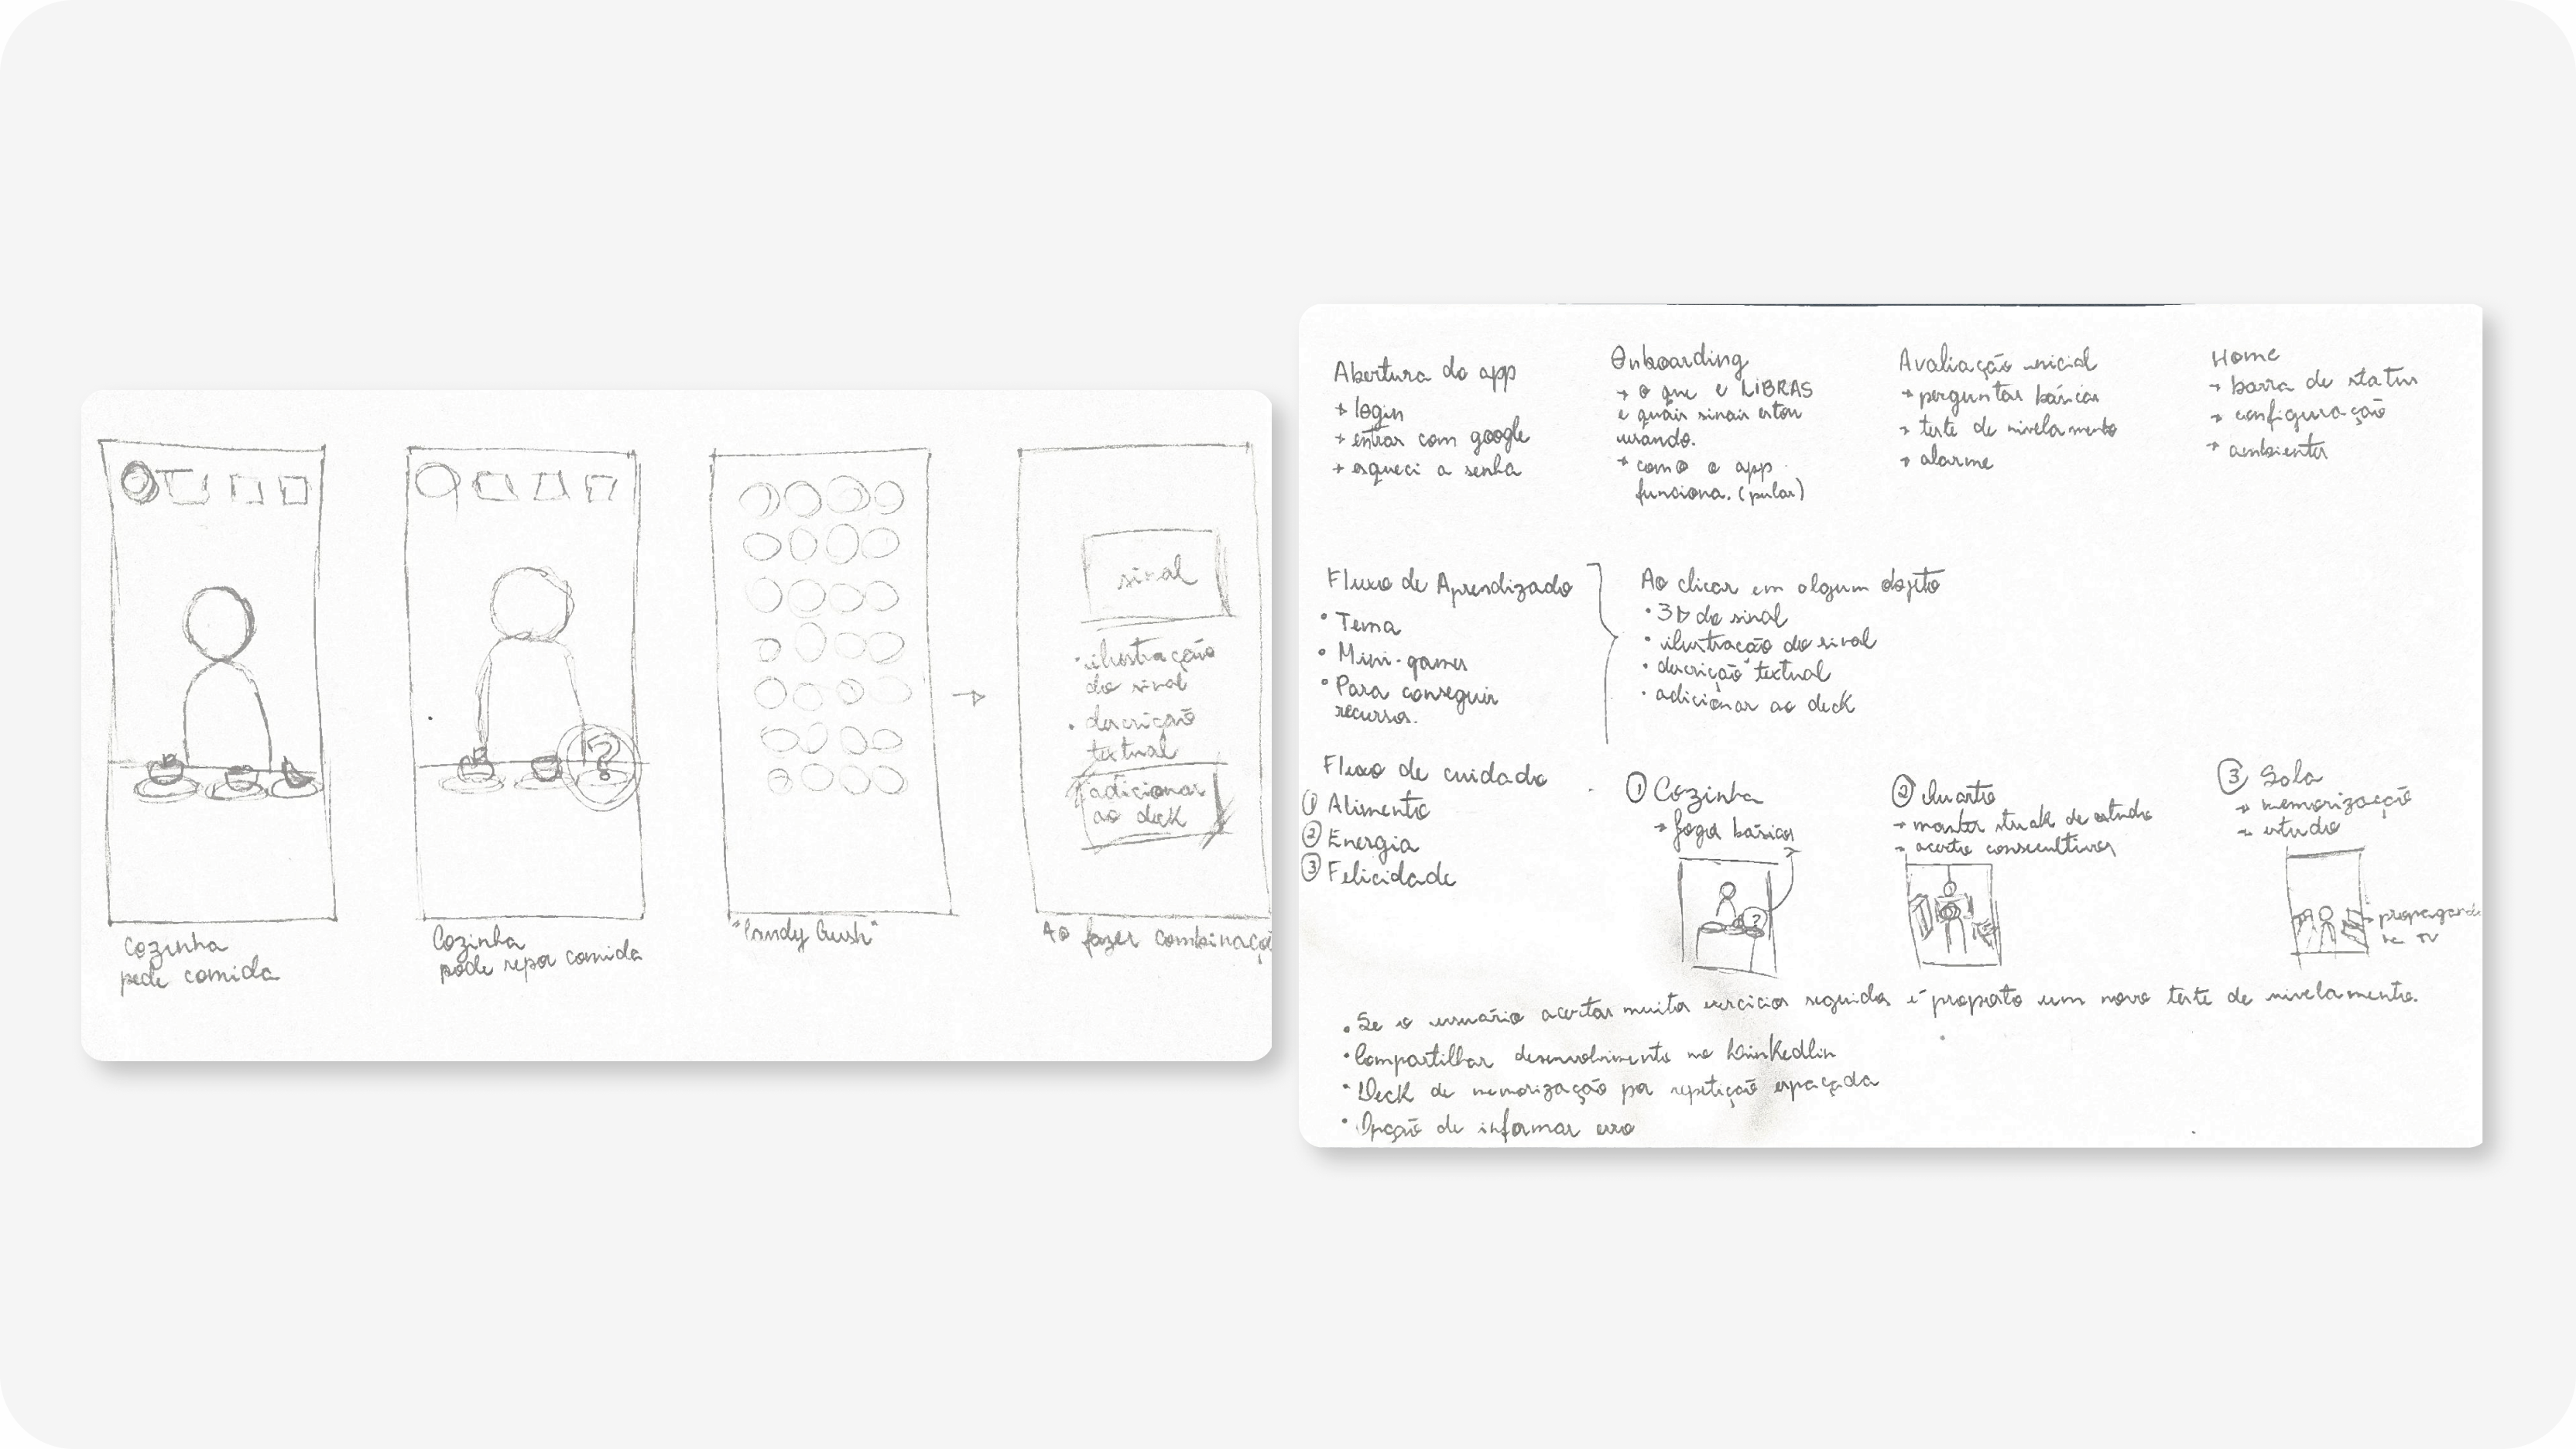 sinal
ilustração
do sinal
descrição
textual
adicionar
ao deck
Cozinha
pede comida
Cozinha
pode repor comida
"Candy Crush"
Ao fazer combinaçõ
Abertura do app
→ login
→ entrar com google
→ esqueci a senha
Onboarding
→ o que é LIBRAS
e quais sinais estou
usando.
→ como o app
funciona. (pular)
Avaliação inicial
→ perguntas básicas
→ teste de nivelamento
→ alarme
Home
→ barra de status
→ configuração
→ ambientes
Fluxo de Aprendizado
• Tema
• Mini-games
• Para conseguir
recursos.
Ao clicar em algum objeto
• 3D do sinal
• ilustração do sinal
• descrição textual
• adicionar ao deck
Fluxo de cuidado
① Alimento
② Energia
③ Felicidade
① Cozinha
→ jogos básicos
?
② Quarto
→ manter streak de estudo
→ acertos consecultivos
③ Sala
→ memorização
→ estudo
→ propaganda
na TV
• Se o usuário acertar muitos exercícios seguidos é proposto um novo teste de nivelamento.
• Compartilhar desenvolvimento no Linkedlin
• Deck de memorização por repetição espaçada
• Opção de informar erro